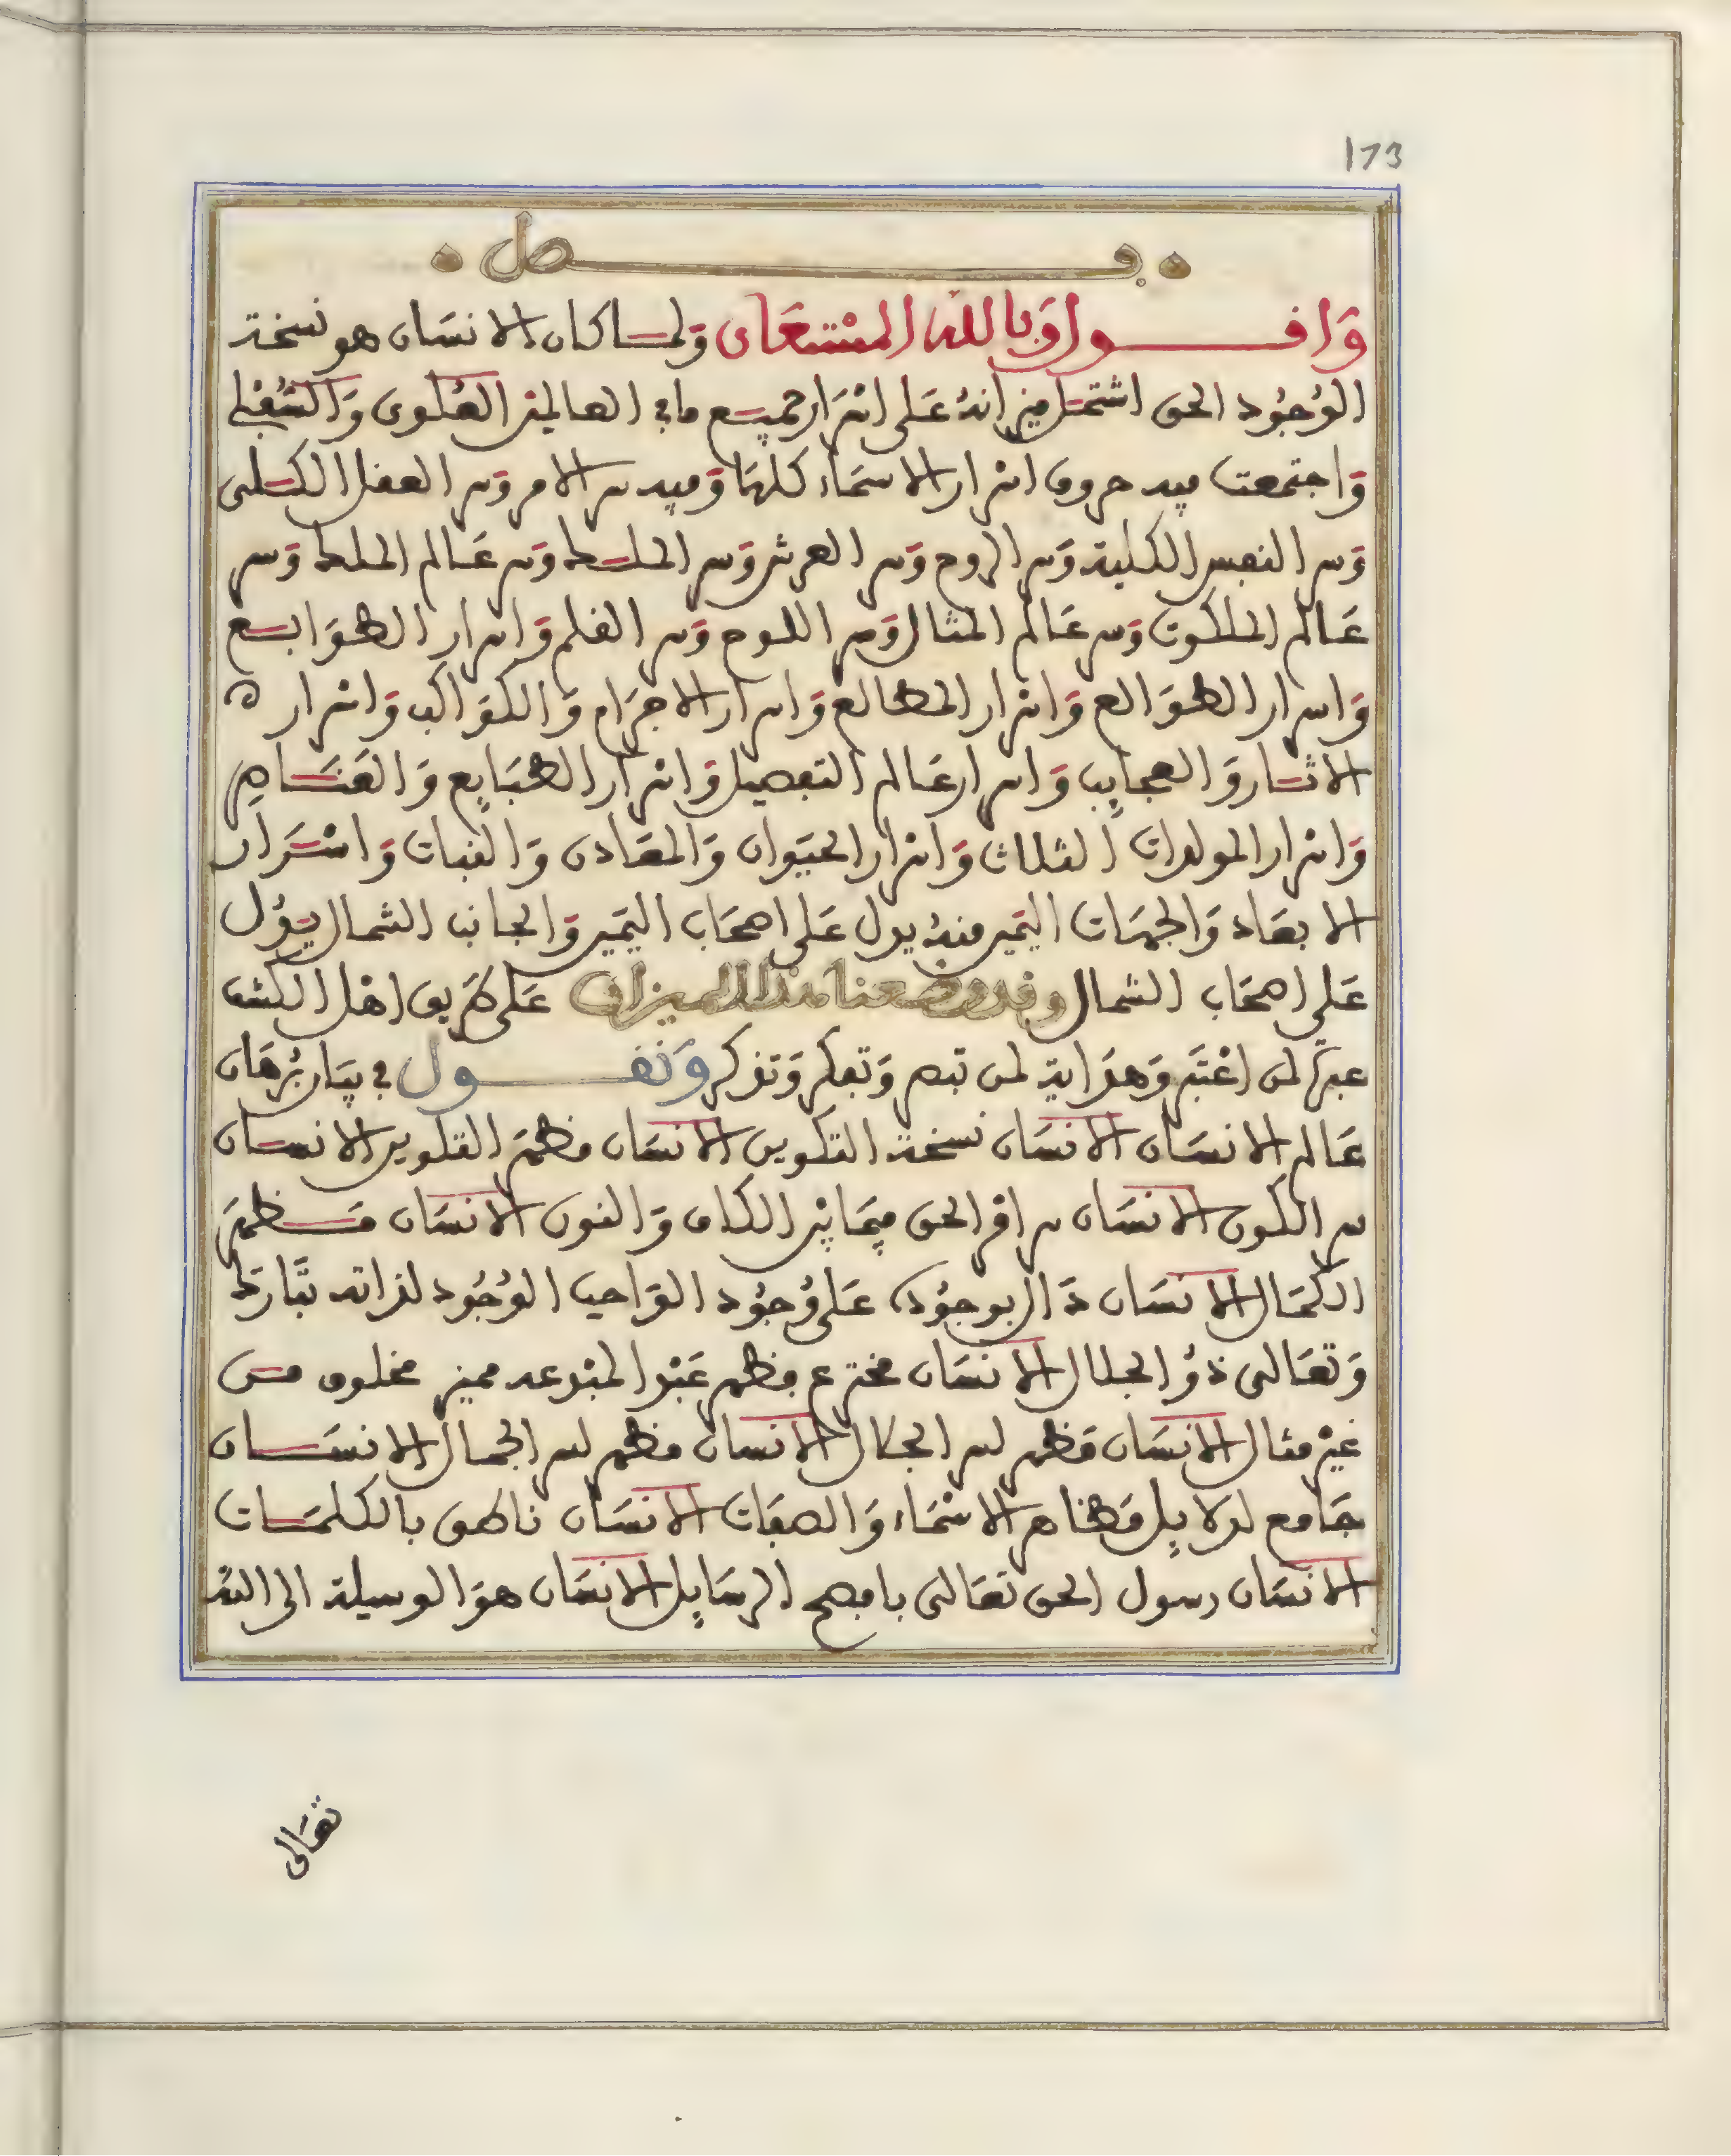 173
فصل
وَاقول وَبالله المسْتعَان وَلما كان الانسَان هو نسخة
الوُجُود الحق اشتمل ميزانهُ عَلى اسْرَار جميع ما في العالمين العُلوى وَالسُفْلى
وَاجتمعت فيه حروف اسرار الاسمَاء كلهَا وَفيه سر الامر وَسر العقل الكلى
وَسر النفس الكلية وَسر الروح وَسر العرش وَسر الملك وَسر عَالم الملك وَسر
عَالم الملكوت وَسر عَالم المثال وَسر اللوح وَسر القلم وَاسرار الطوَابع
وَاسرار الطوَالع وَاسْرار المطالع وَاسرار الاجرَام وَالكوَاكب وَاسْرار ه
الاثار وَالعجايب وَاسرار عَالم التفصيل وَاسْرار الطبَايع وَالعَنَاصر
وَاسْرار المولدات الثلاث وَاسرار الحيَوان وَالمعَادن وَالنبات وَاسْرَار
الابعَاد وَالجهَات اليَمين منهُ يدل عَلى اصحَاب اليَمين وَالجانب الشمال يدُل
عَلى اصحَاب الشمال وقد وضعنا هذا الميزان عَلى طَريق اهْل الكشف
عبرة لمن اعْتَبر وَهوَ اية لمن تبصر وَتفكر وَتذكر وَنقول في بيَان بُرْهَان
عَالم الانسَان الانسَان نسخة التكوين الانسَان مظهَر التكوين الانسان
سر الكون الانسَان سر امر الحق فيمَا بيْن الكاف وَالنون الانسَان مَظهَر
الكمَال الانسَان دَال بوجوُده عَلى وُجوُد الوَاجب الوُجُود لذاته تبَارَك
وَتعَالى ذوُ الجلال الانسَان مخترع مظهر عَبْد المبْدعه مميز مخلوق من
غيْر مثال الانسَان مَظهر لسر الجلال الانسان مظهر لسر الجمال الانسَان
جَامع لدلايل مَظاهر الاسْمَاء وَالصفَات الانسَان ناطق بالكلمَات
الانسَان رسول الحق تعَالى بافصح الرسَايل الانسَان هوَ الوسيلة الى الله
تعَالى